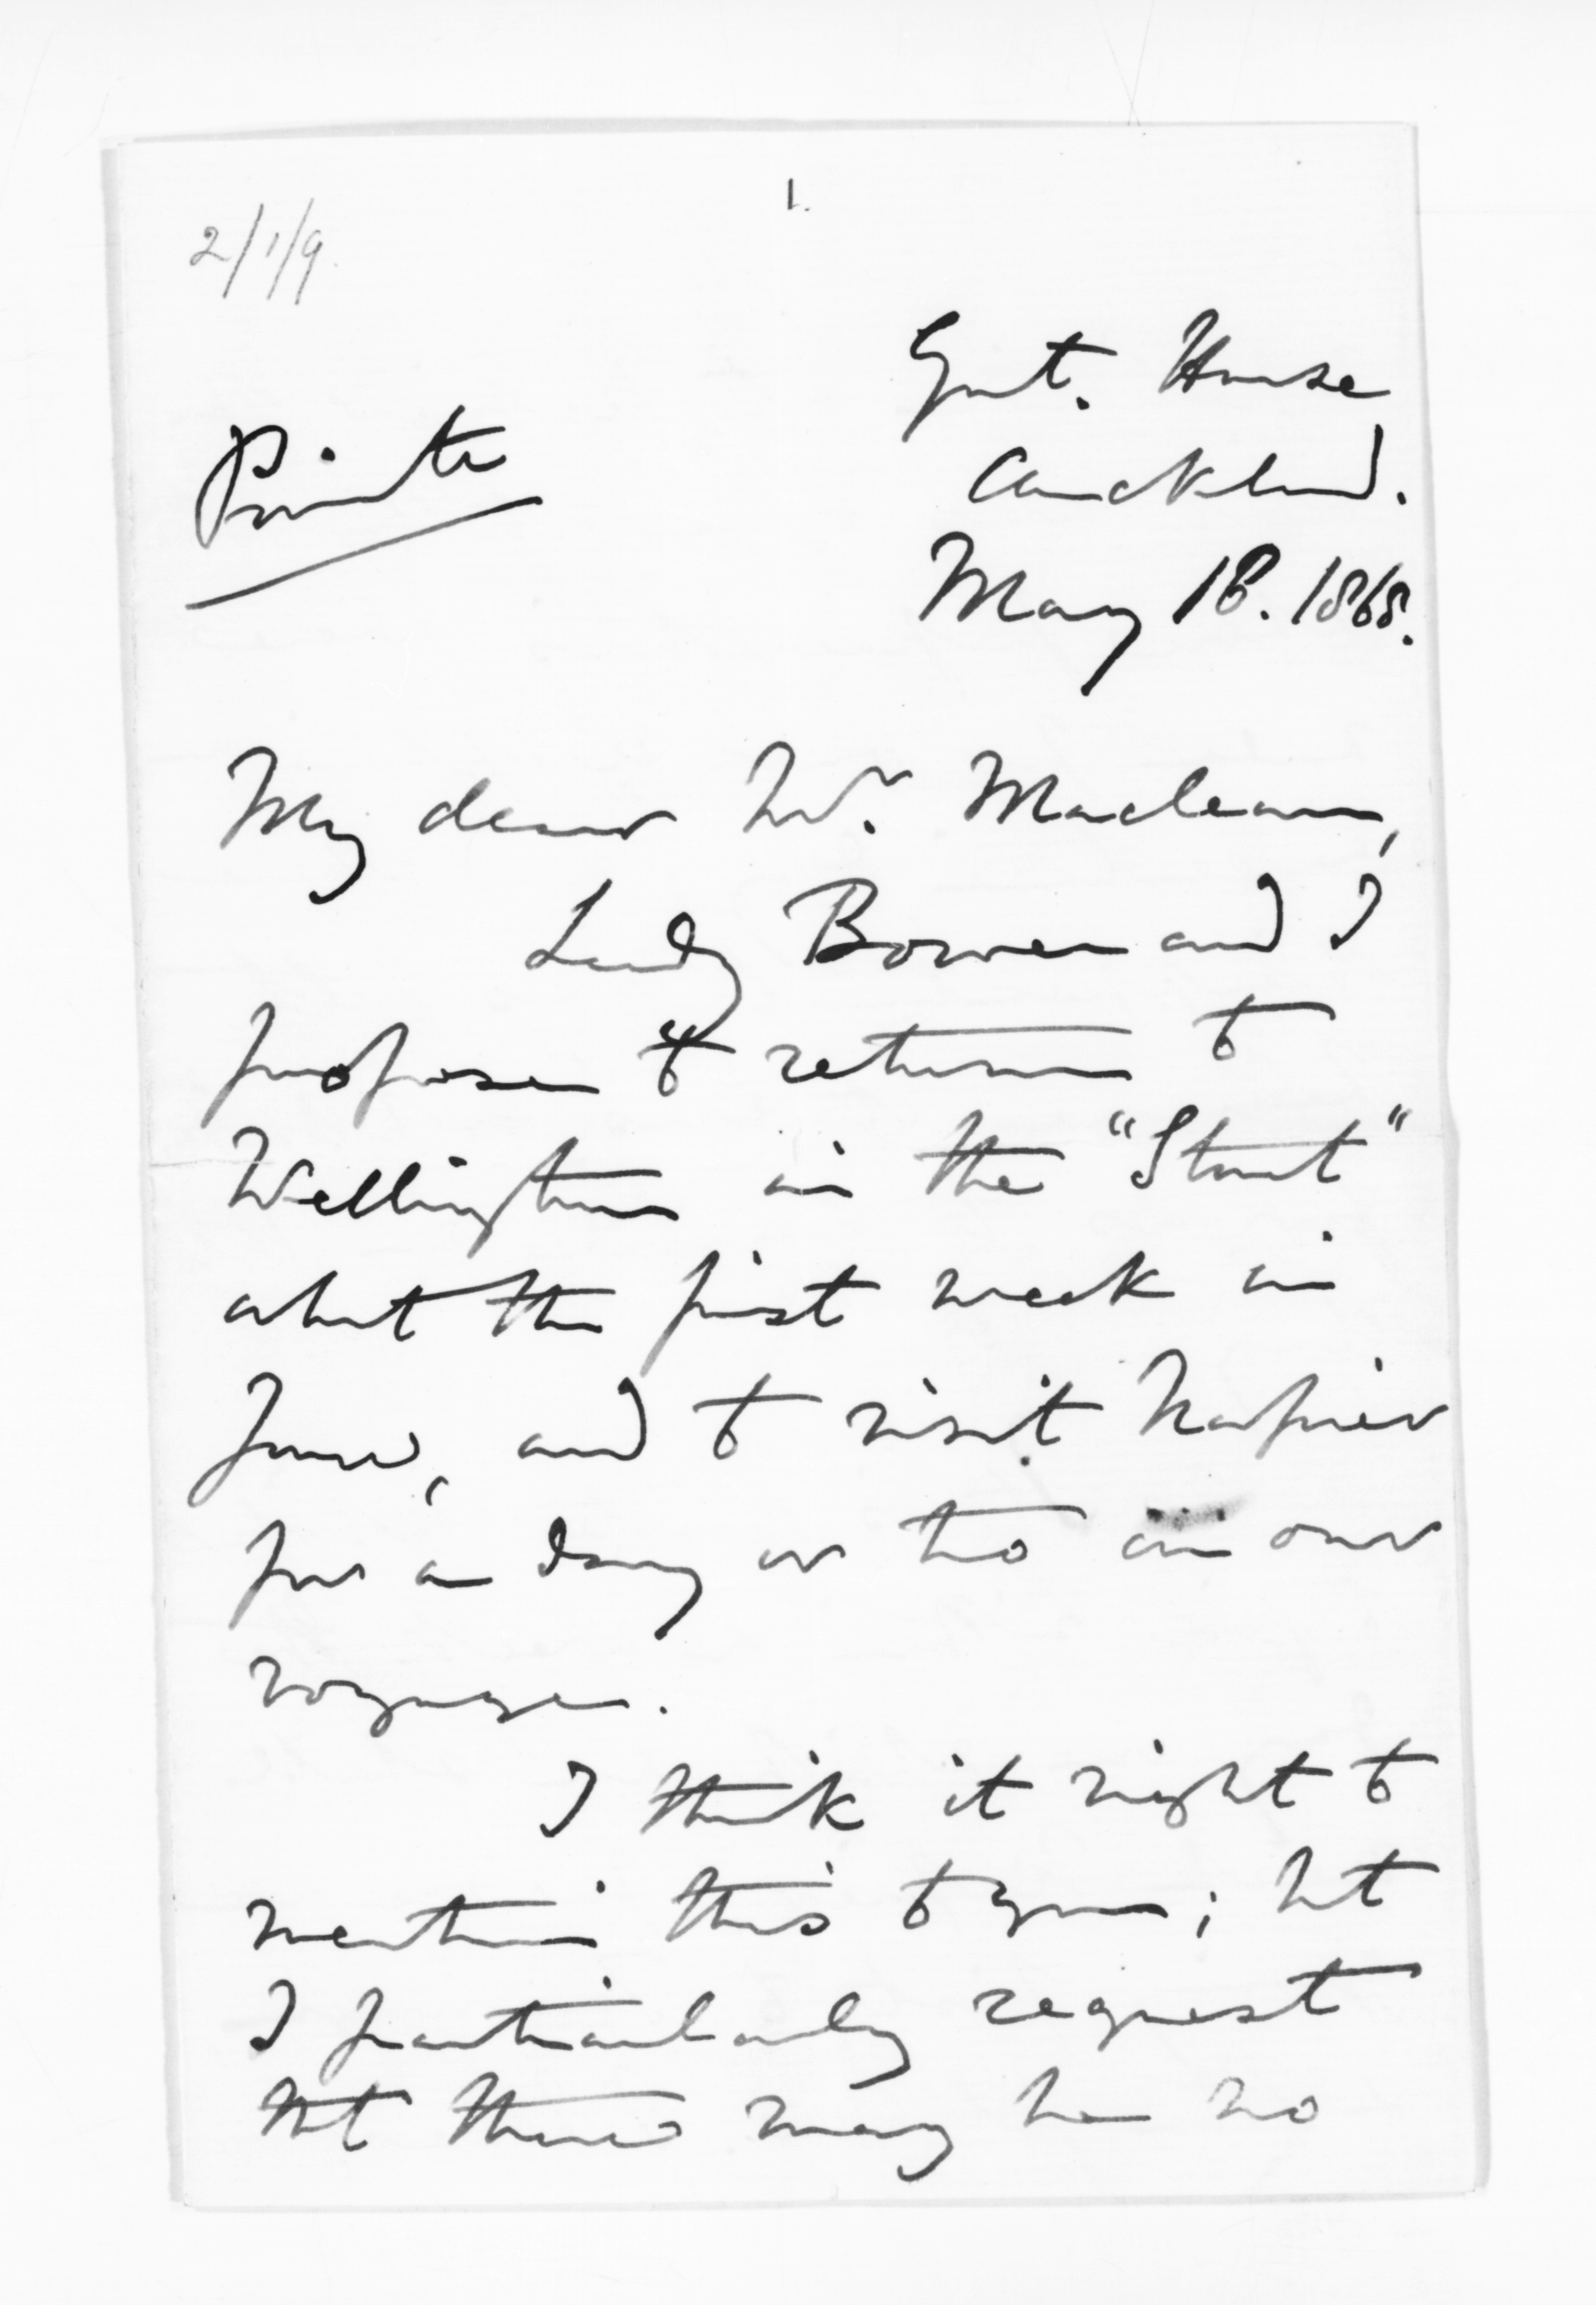 1.
2/1/9.
Govt. House
Auckland.
Private
May 18. 1868.
My dear Mr. Maclean,
Lady Bowen and I
propose to return to
Wellington in the "Sturt"
about the first week in
June, and to visit Napier
for a day or two on our
voyage.
I think it right to
mention this to you; but
I particularly request
that there may be no